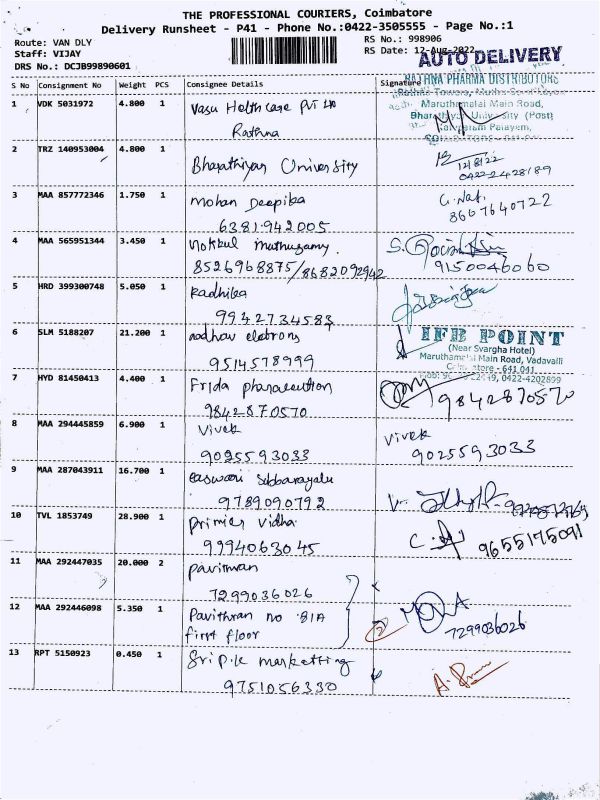 THE PROFESSIONAL COURIERS, Coimbatore
Delivery Runsheet - P41 - Phone No.:0422-3505555 - Page No.:1
Route: VAN DLY
RS No.: 998906
Staff: VIJAY
RS Date: 12-Aug-2022
DRS No.: DCJB99890601
AUTO DELIVERY
S No Consignment No Weight PCS Consignee Details Signature
RATHNA PHARMA DISTRIBUTORS
Maruthamalai Main Road,
Bharathiyar University (Post)
1 VDK 5031972 4.800 1 Vasu Helthcare PVT Ltd
Rasthna
2 TRZ 140953004 4.800 1 Bharathiyar University
12/8/22
0422-2428189
3 MAA 857772346 1.750 1 Mohan Deepika
6381942005
8667640722
4 MAA 565951344 3.450 1 Muthusamy.
8526968875/8682092942
9150046060
5 HRD 399300748 5.050 1 Radhika
9942734583
6 SLM 5188207 21.200 1 madhav eletrons
9514578999
IFB POINT
(Near Svargha Hotel)
Maruthamalai Main Road, Vadavalli
Coimbatore - 641 041
0422-4202899
7 HYD 81450413 4.400 1 Frida pharaceution
9842870570
9842870570
8 MAA 294445859 6.900 1 Vivek
9025593033
Vivek
9025593033
9 MAA 287043911 16.700 1 easwari Subbarayalu
9789090792
10 TVL 1853749 28.900 1 primier Vidha
9994063045
9655175091
11 MAA 292447035 20.000 2 pavithran
7299036026
12 MAA 292446098 5.350 1 Pavithran no 81A
first floor
2
7299036026
13 RPT 5150923 0.450 1 Sri P.K marketting
9751056330